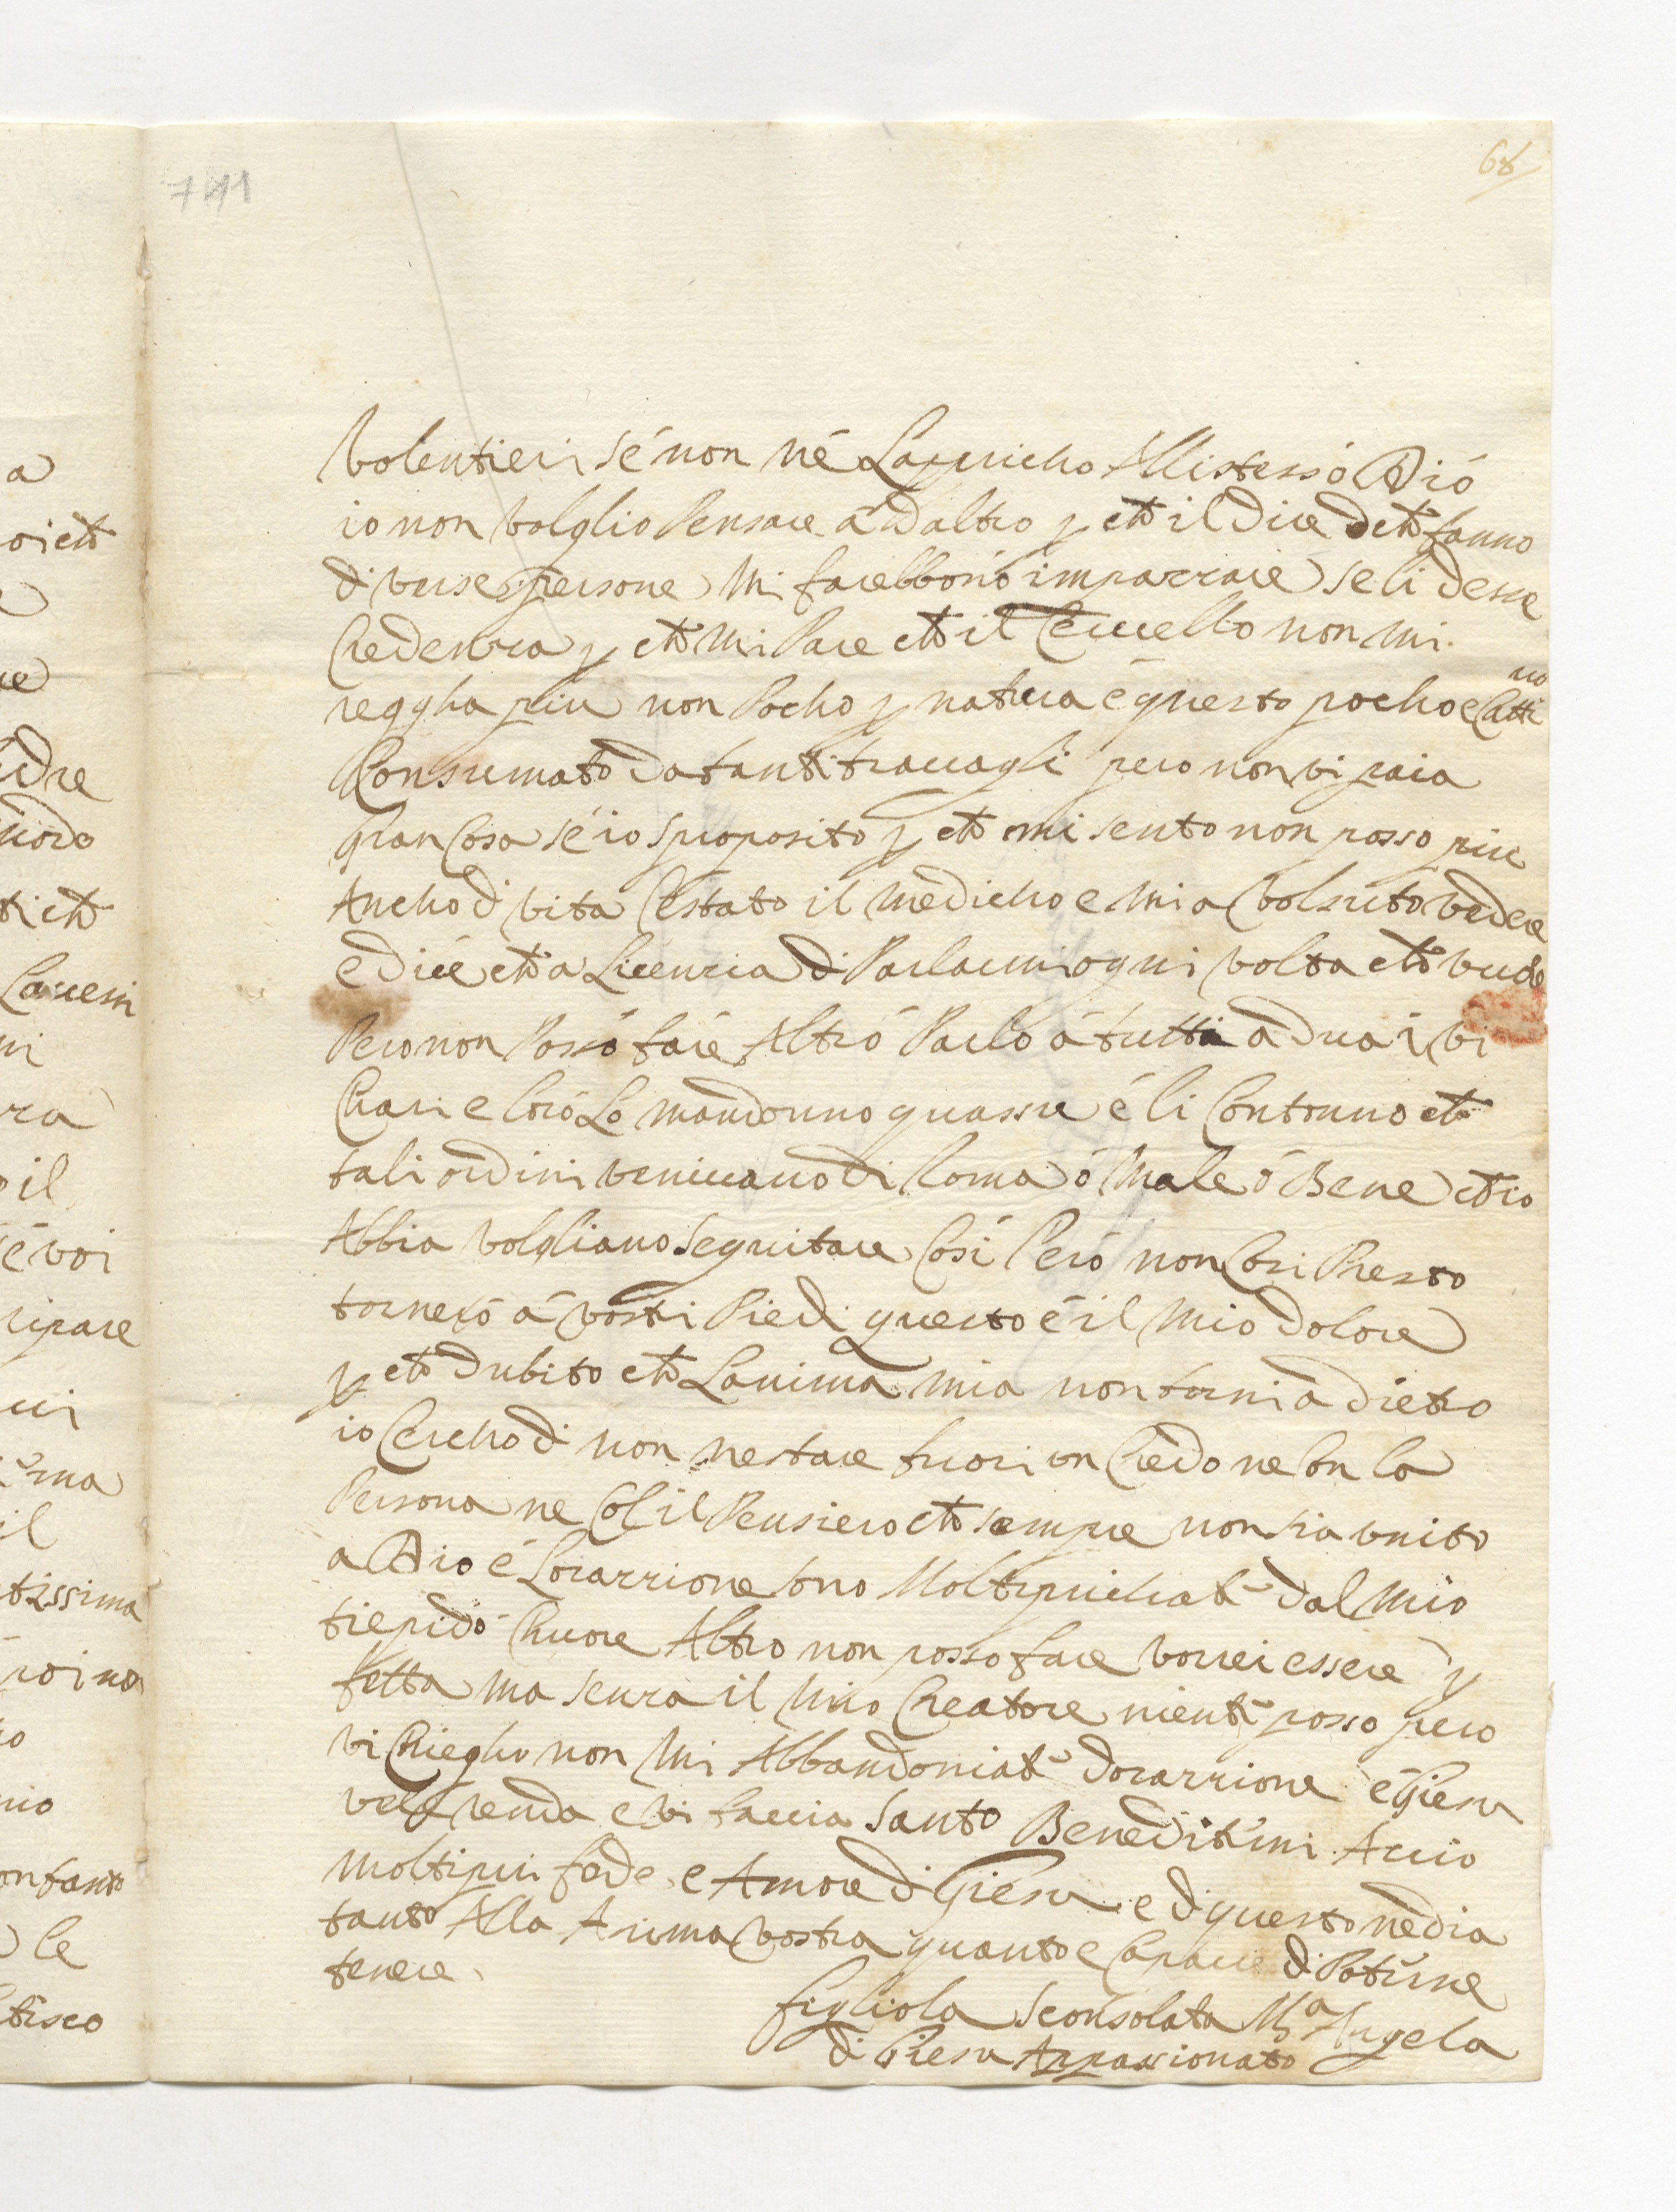 741
68
volentieri sé non né Lapricho Allistessó Dió
io non volglio Pensare á daltro p che il dire che fanno
di verse persone mi farebbono imparzare se li desse
Credenza p che mi Pare che il Cervello non mi
reggha piu non Pocho p natura é questo pocho e Catti
vo
Consumato da tanti travagli pero non vi paia
gran Cosa sé io sproposito p che mi sento non posso piu
Ancho di vita Cestato il medicho e mi a volsuto vedere
e dicé che a Licenzia di Parlarmi ogni volta che vuole
Pero non Possó faré Altró Parló á tutti a dua i vi
Chari e loró Lo mandonno quassu é li Contonno che
tali ordini venivano di Roma ó Male ó Bene che io
Abbia volgliano seguitare Cosi Peró non Cosi Presto
torneró á vostri Piedi questo é il mio dolore
p che dubito che Lanima mia non torni á dietro
io Cercho di non nestare fuori un Credo ne Con la
Persona ne Col il Pensiero che sempre non sia unito
a Dio é Lorazzione sono Moltiprichate dal mio
tiepidó Chuore Altro non posso fare vorrei essere p
fetta ma senza il mio Creatore niente posso pero
vi Priegho non mi Abbandoniate dorazzione é Giesu
vel renda e vi faccia santo Beneditemi Accio
moltipri fede e Amore di Giesu e di questo né dia
tanto Alla Anima vostra quanto e Capace di Poterne
tenere
figliola sconsolata Ma Angela
di Giesu Appassionato
a
oi che
Carcessi
ra
il
é voi
tissima
poi no
le